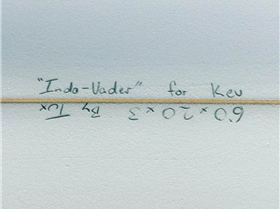 "Indo-Vader" for Kev
6'0 x 20 x 3 By Tux